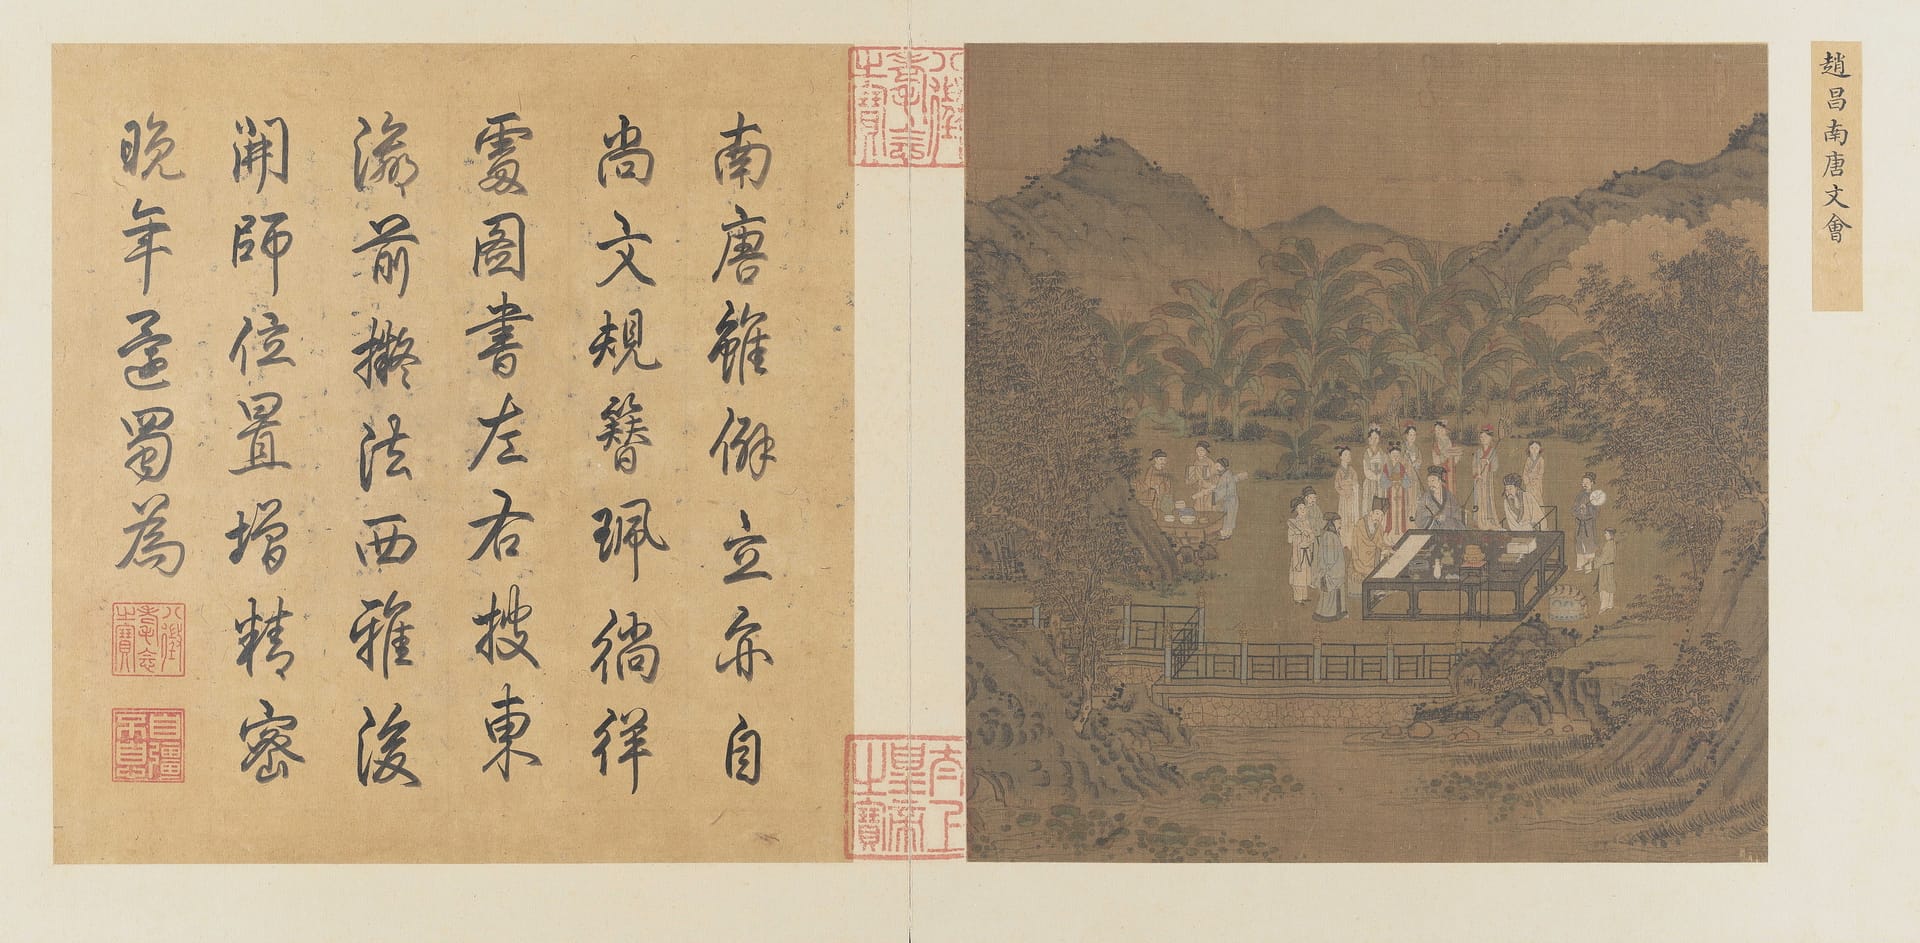 趙昌南唐文會
八徵耄念之寶
太上皇帝之寶
南唐雖僻立亦自
尚文規簪珮徜徉
處圖書左右披東
瀛前擬法西雅後
開師位置增精密
晚年還蜀為
八徵耄念之寶
自彊不息